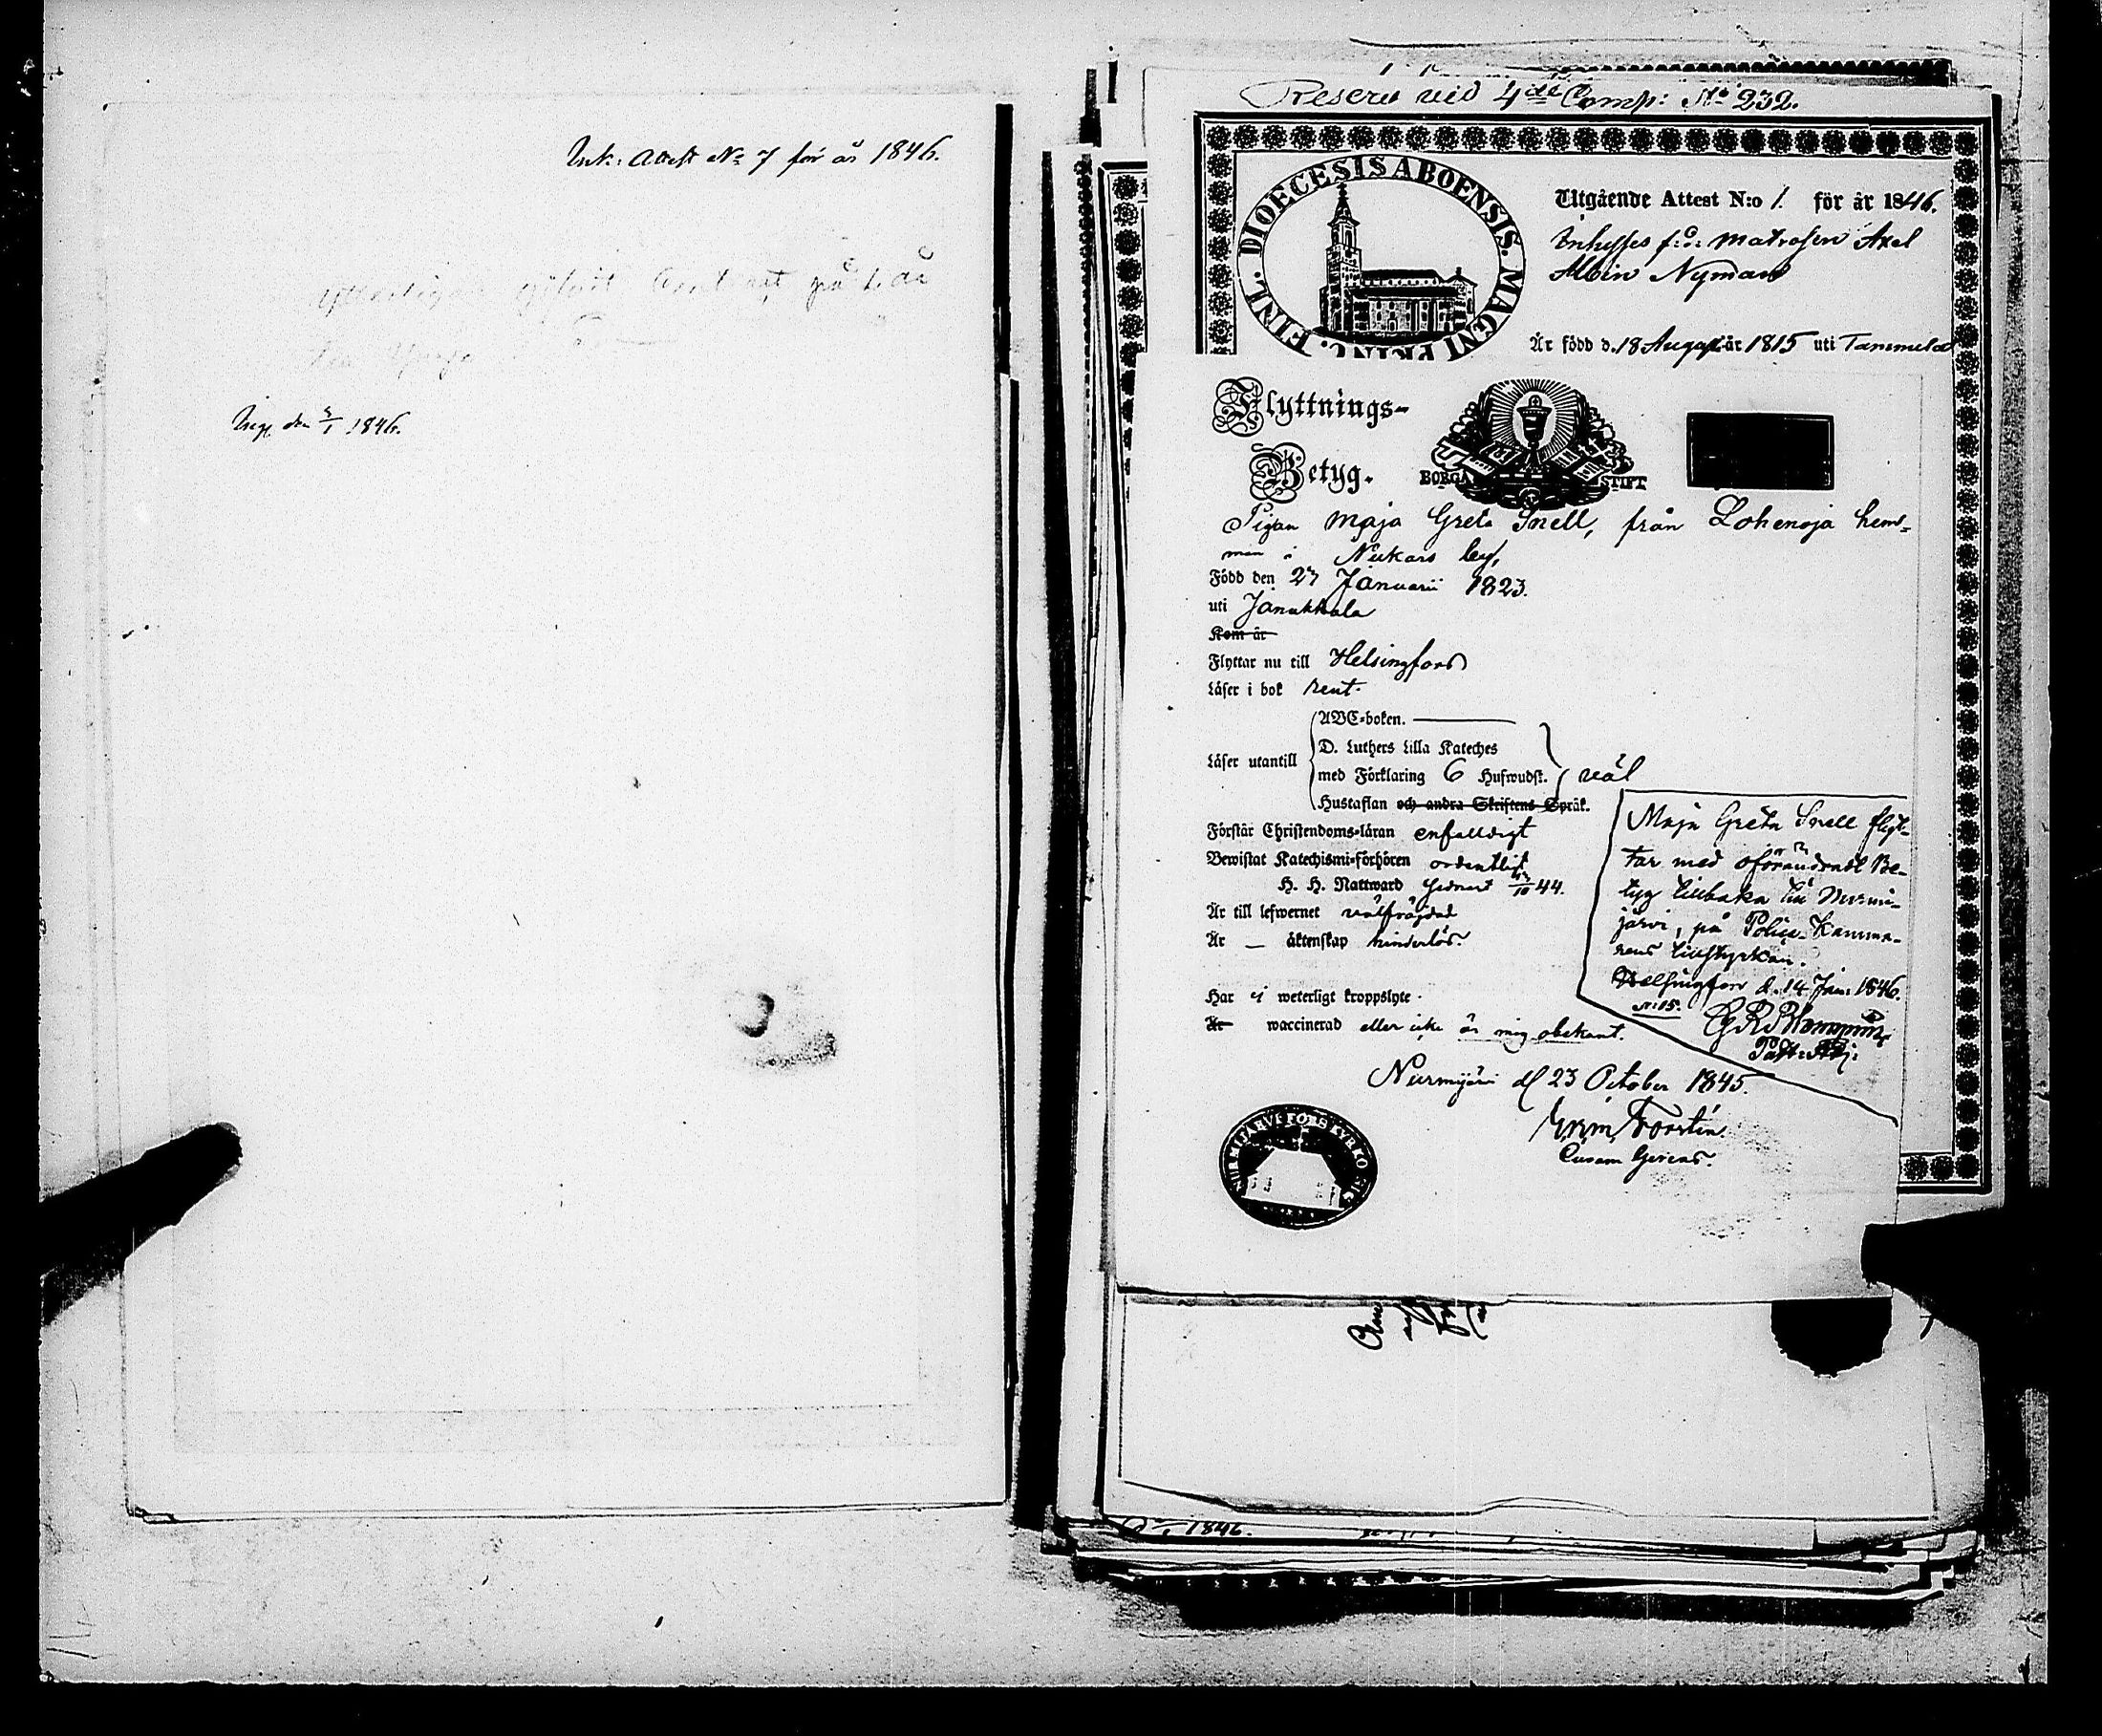 Ink: Attest No 7 för år 1846.
på 1. år
Ingf den 5/1 1846.
Reserv vid 4de Comp: No 232.
DIOECESIS ABOENSIS. MAGNI PRINC. FINL.
Utgående Attest N:o 1. för år 1846.
f: d: Matrosen Axel
Albin Nyman
Är född d. 18 August år 1815 uti Tammela
Flyttnings-
Betyg.
BORGÅ STIFT
Pigan Maja Greta Snell, från Lohenoja hem-
man i Nukars by,
Född den 27 Januarii 1823.
uti Janakkala
Kom år
Flyttar nu till Helsingfors
Läser i bok rent.
Läser utantill
ABC-boken.
D. Luthers Lilla Kateches
med Förklaring 6 Hufwudst. väl
Hustaflan och andra Skriftens Språk.
Förstår Christendoms-läran enfaldigt
Bewistat Katechismi-förhören ordentligt
H. H. Nattward 44.
Är till lefwernet välfrägdad
Är — äktenskap hinderlös.
Har ej weterligt kroppslyte.
Är waccinerad eller icke är mig obekant.
Nurmijärvi d 23 October 1845.
Forstén
Curam Gerens.
NURMIJARVI FORS KYRKO SIG
Maja Greta Snell flyt-
tar med oförändradt Be-
tyg tillbaka till Nurmi-
järvi, på Police-Kamma-
rens tillstyrkan.
Helsingfors d. 14 Jan: 1846.
N: 15.
Past: Adj:
1846.